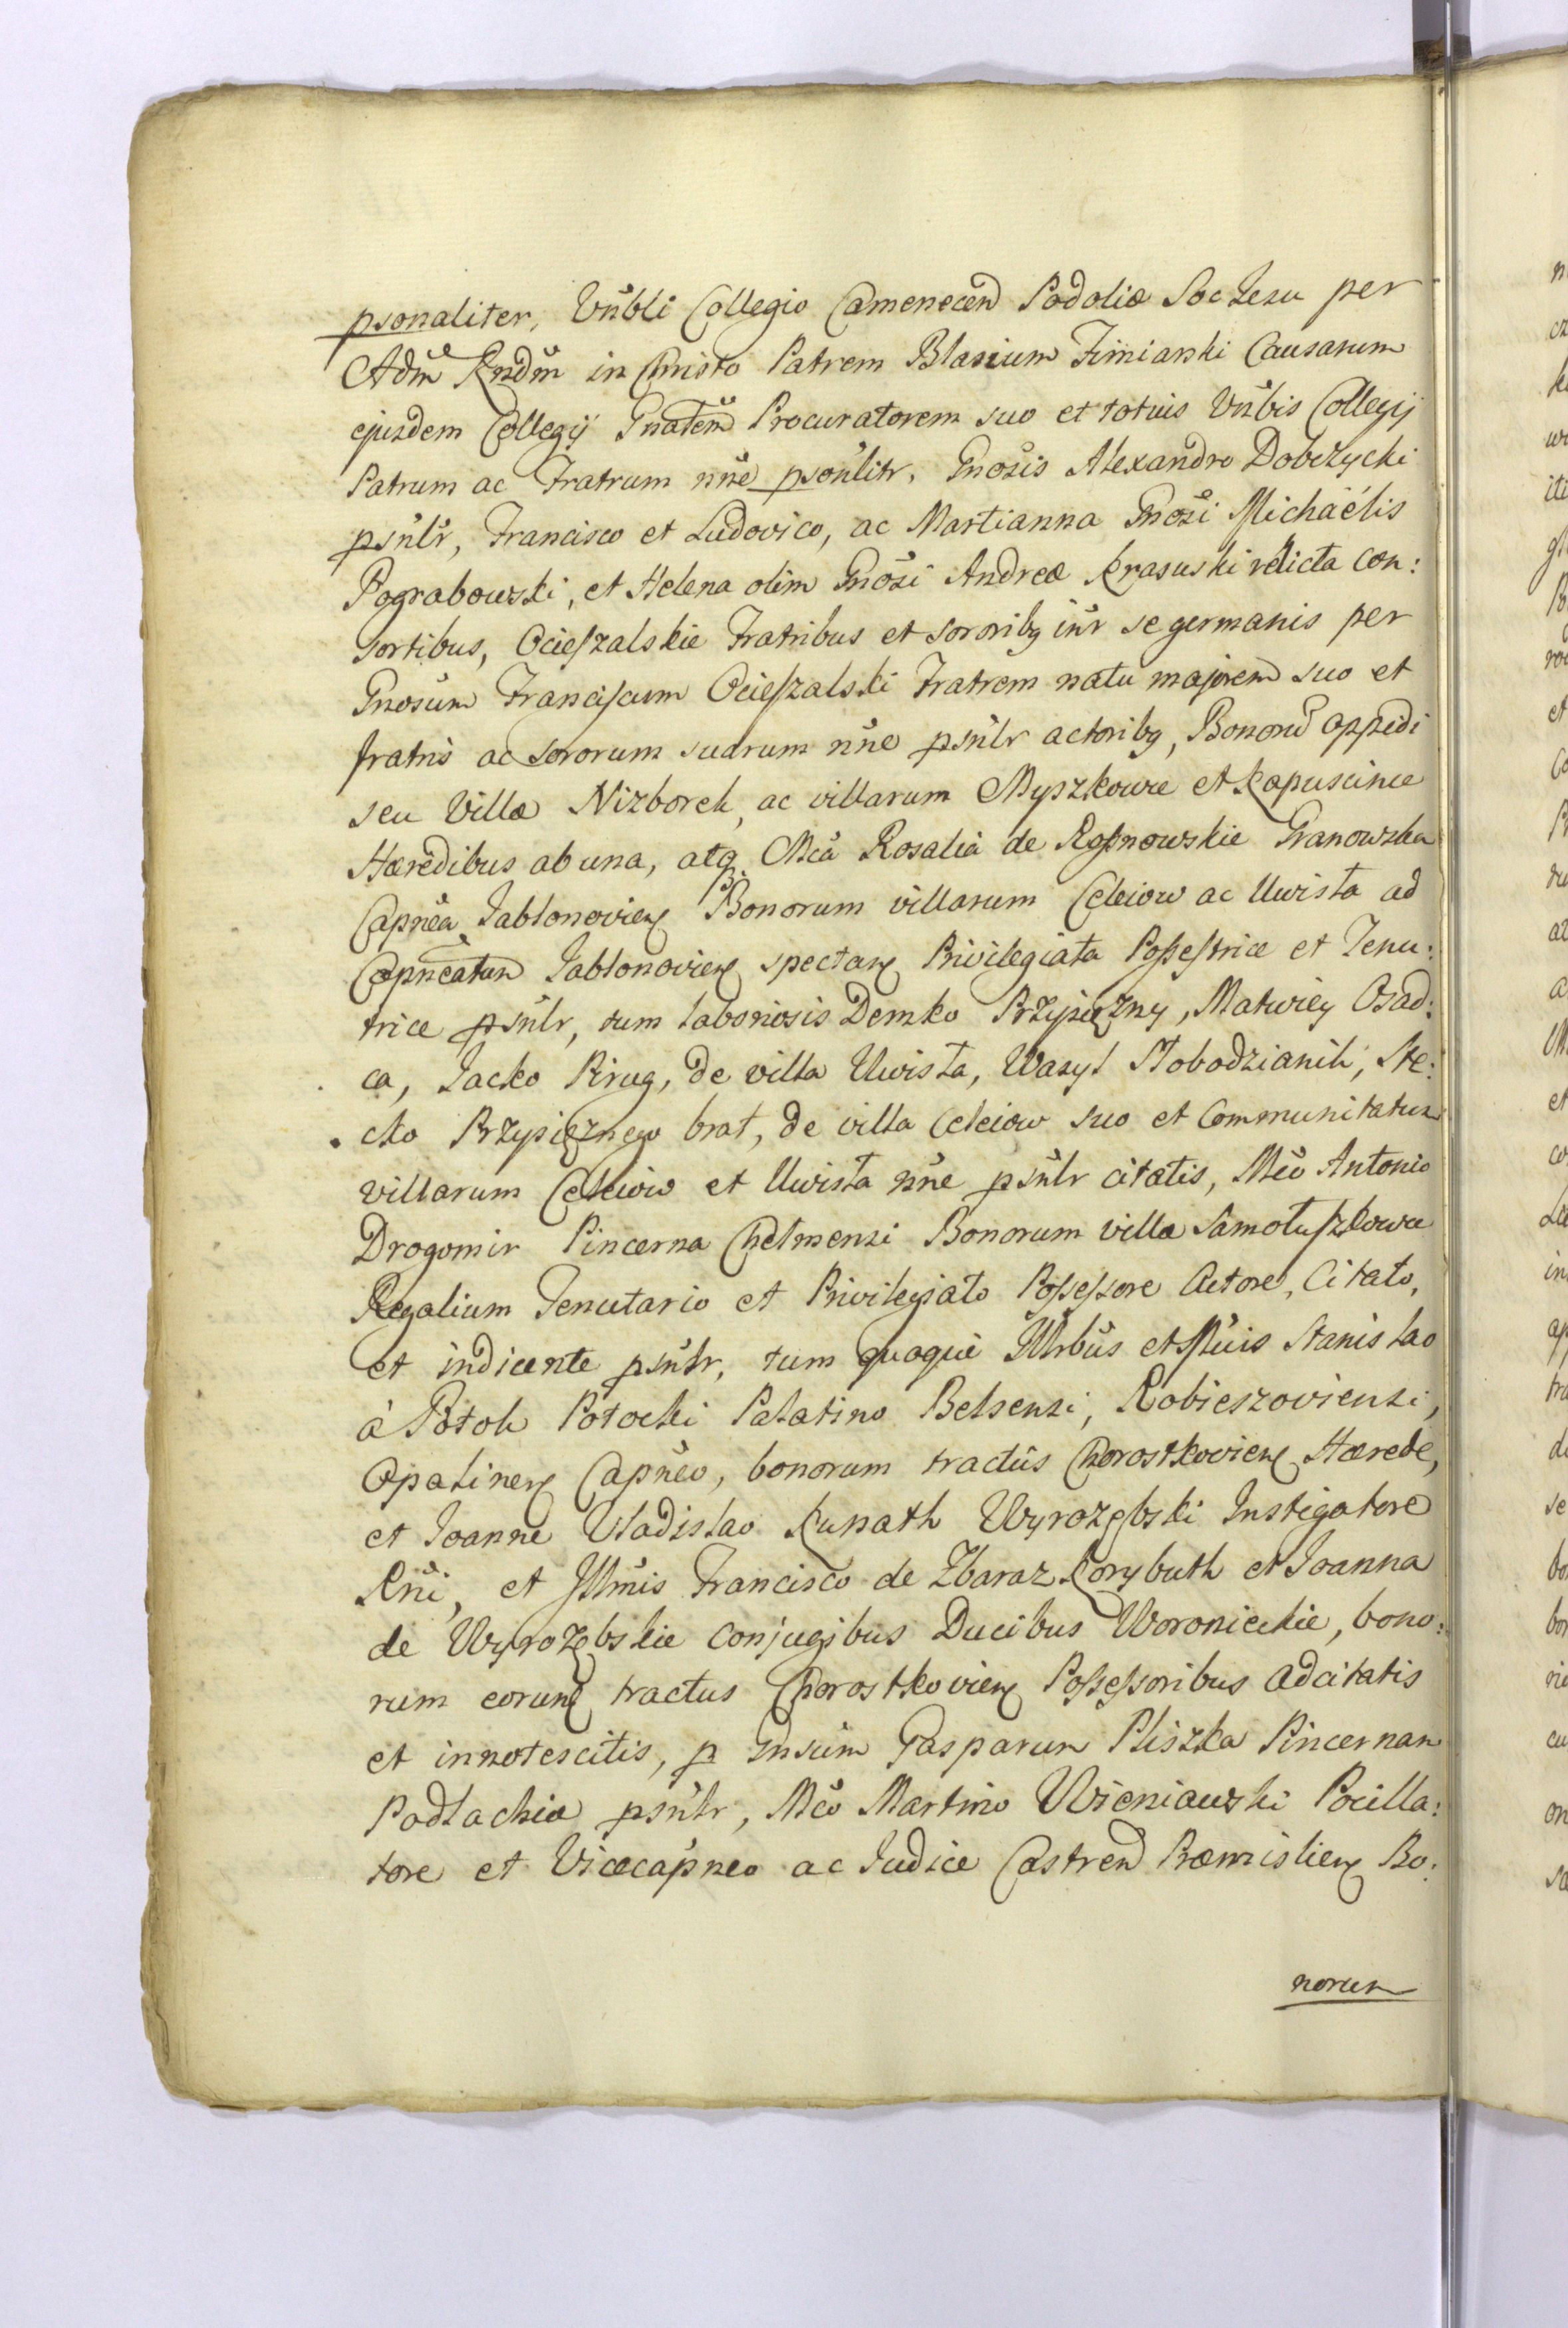 psonaliter, Vnbli Collegio Camenecen Podoliæ Soc Jesu per
Adm Rndm in Christo Patrem Blasium Fimianski Causarum
ejusdem Collegij Gnalem Procuratorem suo et totius Vnbis Collegij
Patrum ac Fratrum nne psonlitr, Gnosis Alexandro Dobczycki
psnlr, Francisco et Ludovico, ac Martianna Gnosi Michaëlis
Pograbowski, et Helena olim Gnosi Andreæ Krasuski relicta con:
sortibus, Ocieszalskie Fratribus et sororibq inr se germanis per
Gnosum Franciscum Ocieszalski Fratrem natu majorem suo et
fratris ac sororum suarum nne psnlr actoribq, Bonoru oppidi
seu Villæ Nizborek, ac villarum Myszkowce et Kapuscince
Hæredibus ab una, atq Mca Rosalia de Granowska
Capnea Jablonovien Bonorum villarum Celeiow ac Uwista ad
Capneatum Jablonovien spectan Privilegiata Possestrice et Tenu:
trice psnlr, tum laboriosis Demko Przysięzny, Matwiey Osad:
ca, Jacko Krug, de villa Uwista, Wasyl Słobodzianik, Ste:
cko Przysięznego brat, de villa Celeiow suo et Communitatum
villarum Celeiow et Uwista nne psnlr citatis, Mco Antonio
Drogomir Pincerna Chelmensi Bonorum villæ Samołuszkowce
Regalium Tenutario et Privilegiato Possessore Actore, Citato,
et indicente psnlr, tum quoque Illrbus et Mcis Stanislao
à Potok Potocki Palatino Belsensi, Robieszoviensi,
Opalinen Capneo, bonorum tractus Chorostkovien Hærede,
et Joanne Vladislao Kunath Wyrozębski Instigatore
Rni, et Illmis Francisco de Zbaraz Korybuth et Joanna
de Wyrozębskie conjugibus Ducibus Woronieckie, bono:
rum eorund tractus Chorostkovien Possessoribus adcitatis
et innotescitis, p Gnsum Gasparum Pliszka Pincernam
Podlachiæ psnlr, Mco Martino Wieniawski Pocilla:
tore et Vicecapneo ac Judice Castren Præmislien Bo:
norum